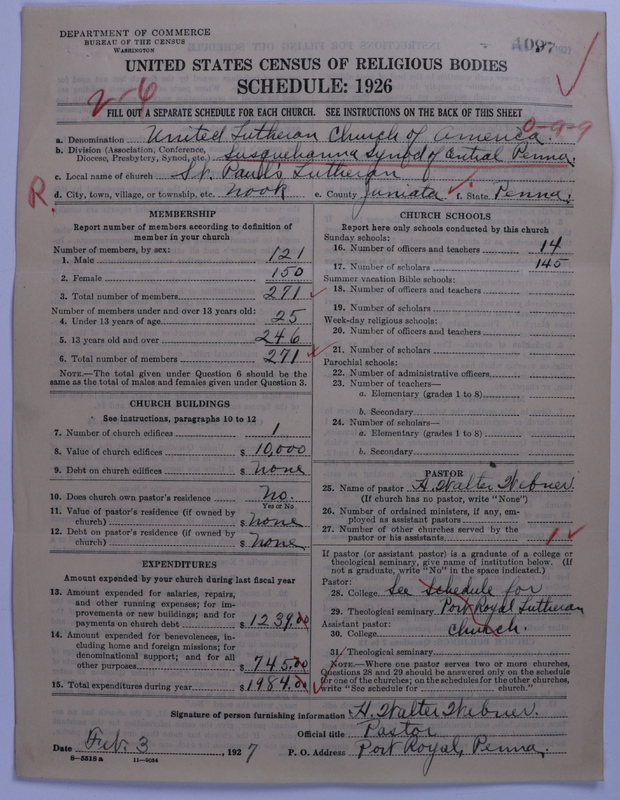 DEPARTMENT OF COMMERCE
BUREAU OF THE CENSUS
WASHINGTON
1097
UNITED STATES CENSUS OF RELIGIOUS BODIES
SCHEDULE: 1926
2-6
FILL OUT A SEPARATE SCHEDULE FOR EACH CHURCH. SEE INSTRUCTIONS ON THE BACK OF THIS SHEET
0-9-9
a. Denomination United Lutheran Church of America.
b. Division (Association, Conference,
Diocese, Presbytery, Synod, etc.) Susquehanna Synod of Central Penna.
c. Local name of church St. Paul's Lutheran
R.
d. City, town, village, or township, etc. Nook e. County Juniata f. State Penna.
MEMBERSHIP
Report number of members according to definition of
member in your church
Number of members, by sex:
1. Male 121
2. Female 150
3. Total number of members 271
Number of members under and over 13 years old:
4. Under 13 years of age 25
5. 13 years old and over 246
6. Total number of members 271
NOTE.—The total given under Question 6 should be
same as the total of males and females given under Question 3.
CHURCH BUILDINGS
See instructions, paragraphs 10 to 12
7. Number of church edifices 1
8. Value of church edifices $ 10,000
9. Debt on church edifices $ none
10. Does church own pastor's residence no.
Yes or No
11. Value of pastor's residence (if owned by
church) $ none
12. Debt on pastor's residence (if owned by
church) $ none
EXPENDITURES
Amount expended by your church during last fiscal year
13. Amount expended for salaries, repairs,
and other running expenses; for im-
provements or new buildings; and for
payments on church debt $ 1239.00
14. Amount expended for benevolences, in-
cluding home and foreign missions; for
denominational support; and for all
other purposes $ 745.00
15. Total expenditures during year $ 1984.00
CHURCH SCHOOLS
Report here only schools conducted by this church
Sunday schools:
16. Number of officers and teachers 14
17. Number of scholars 145
Summer vacation Bible schools:
18. Number of officers and teachers
19. Number of scholars
Week-day religious schools:
20. Number of officers and teachers
21. Number of scholars
Parochial schools:
22. Number of administrative officers
23. Number of teachers—
a. Elementary (grades 1 to 8)
b. Secondary
24. Number of scholars—
a. Elementary (grades 1 to 8)
b. Secondary
PASTOR
25. Name of pastor H. Walter Webner.
(If church has no pastor, write "None")
26. Number of ordained ministers, if any, em-
ployed as assistant pastors
27. Number of other churches served by the
pastor or his assistants 1
If pastor (or assistant pastor) is a graduate of a college or
theological seminary, give name of institution below. (If
not a graduate, write "No" in the space indicated.)
Pastor:
28. College See Schedule for
29. Theological seminary Port Royal Lutheran
Assistant pastor:
30. College Church.
31. Theological seminary
NOTE.—Where one pastor serves two or more churches,
Questions 28 and 29 should be answered only on the schedule
for one of the churches; on the schedules for the other churches,
write "See schedule for church."
Signature of person furnishing information H. Walter Webner.
Official title Pastor
Date Feb. 3, 1927 P. O. Address Port Royal, Penna.
8-5518 a 11-9034